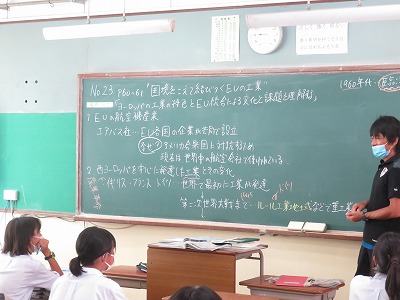 No.23 P60~61 "国境をこえて結びつくEUの工業"
ヨーロッパの工業の特色とEU統合による変化と課題を理解する。
1960年代..
1. EUの航空機産業
エアバス社… EU各国の企業が共同で設立
なぜ？ アメリカ合衆国に対抗するため
現在は世界中の航空会社で使われている。
2. 西ヨーロッパを中心に発達した工業とその変化
イギリス・フランス・ドイツ… 世界で最初に工業が発達
ドイツ
第二次世界大戦まで… ルール工業地域などで重工業